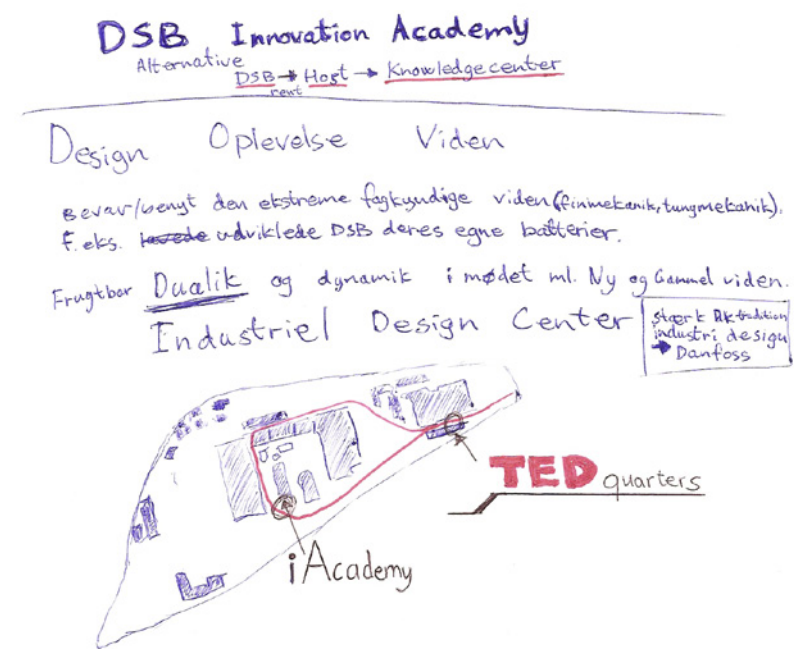 DSB Innovation Academy
Alternative
DSB → Host → Knowledgecenter
rent
Design Oplevelse Viden
Bevar/benyt den ekstreme fagkyndige viden (finmekanik, tungmekanik).
F.eks. lavede udviklede DSB deres egne batterier.
Frugtbar Dualik og dynamik i mødet ml. Ny og Gammel viden.
Industriel Design Center
stærk DK tradition
industri design
→ Danfoss
TED quarters
iAcademy